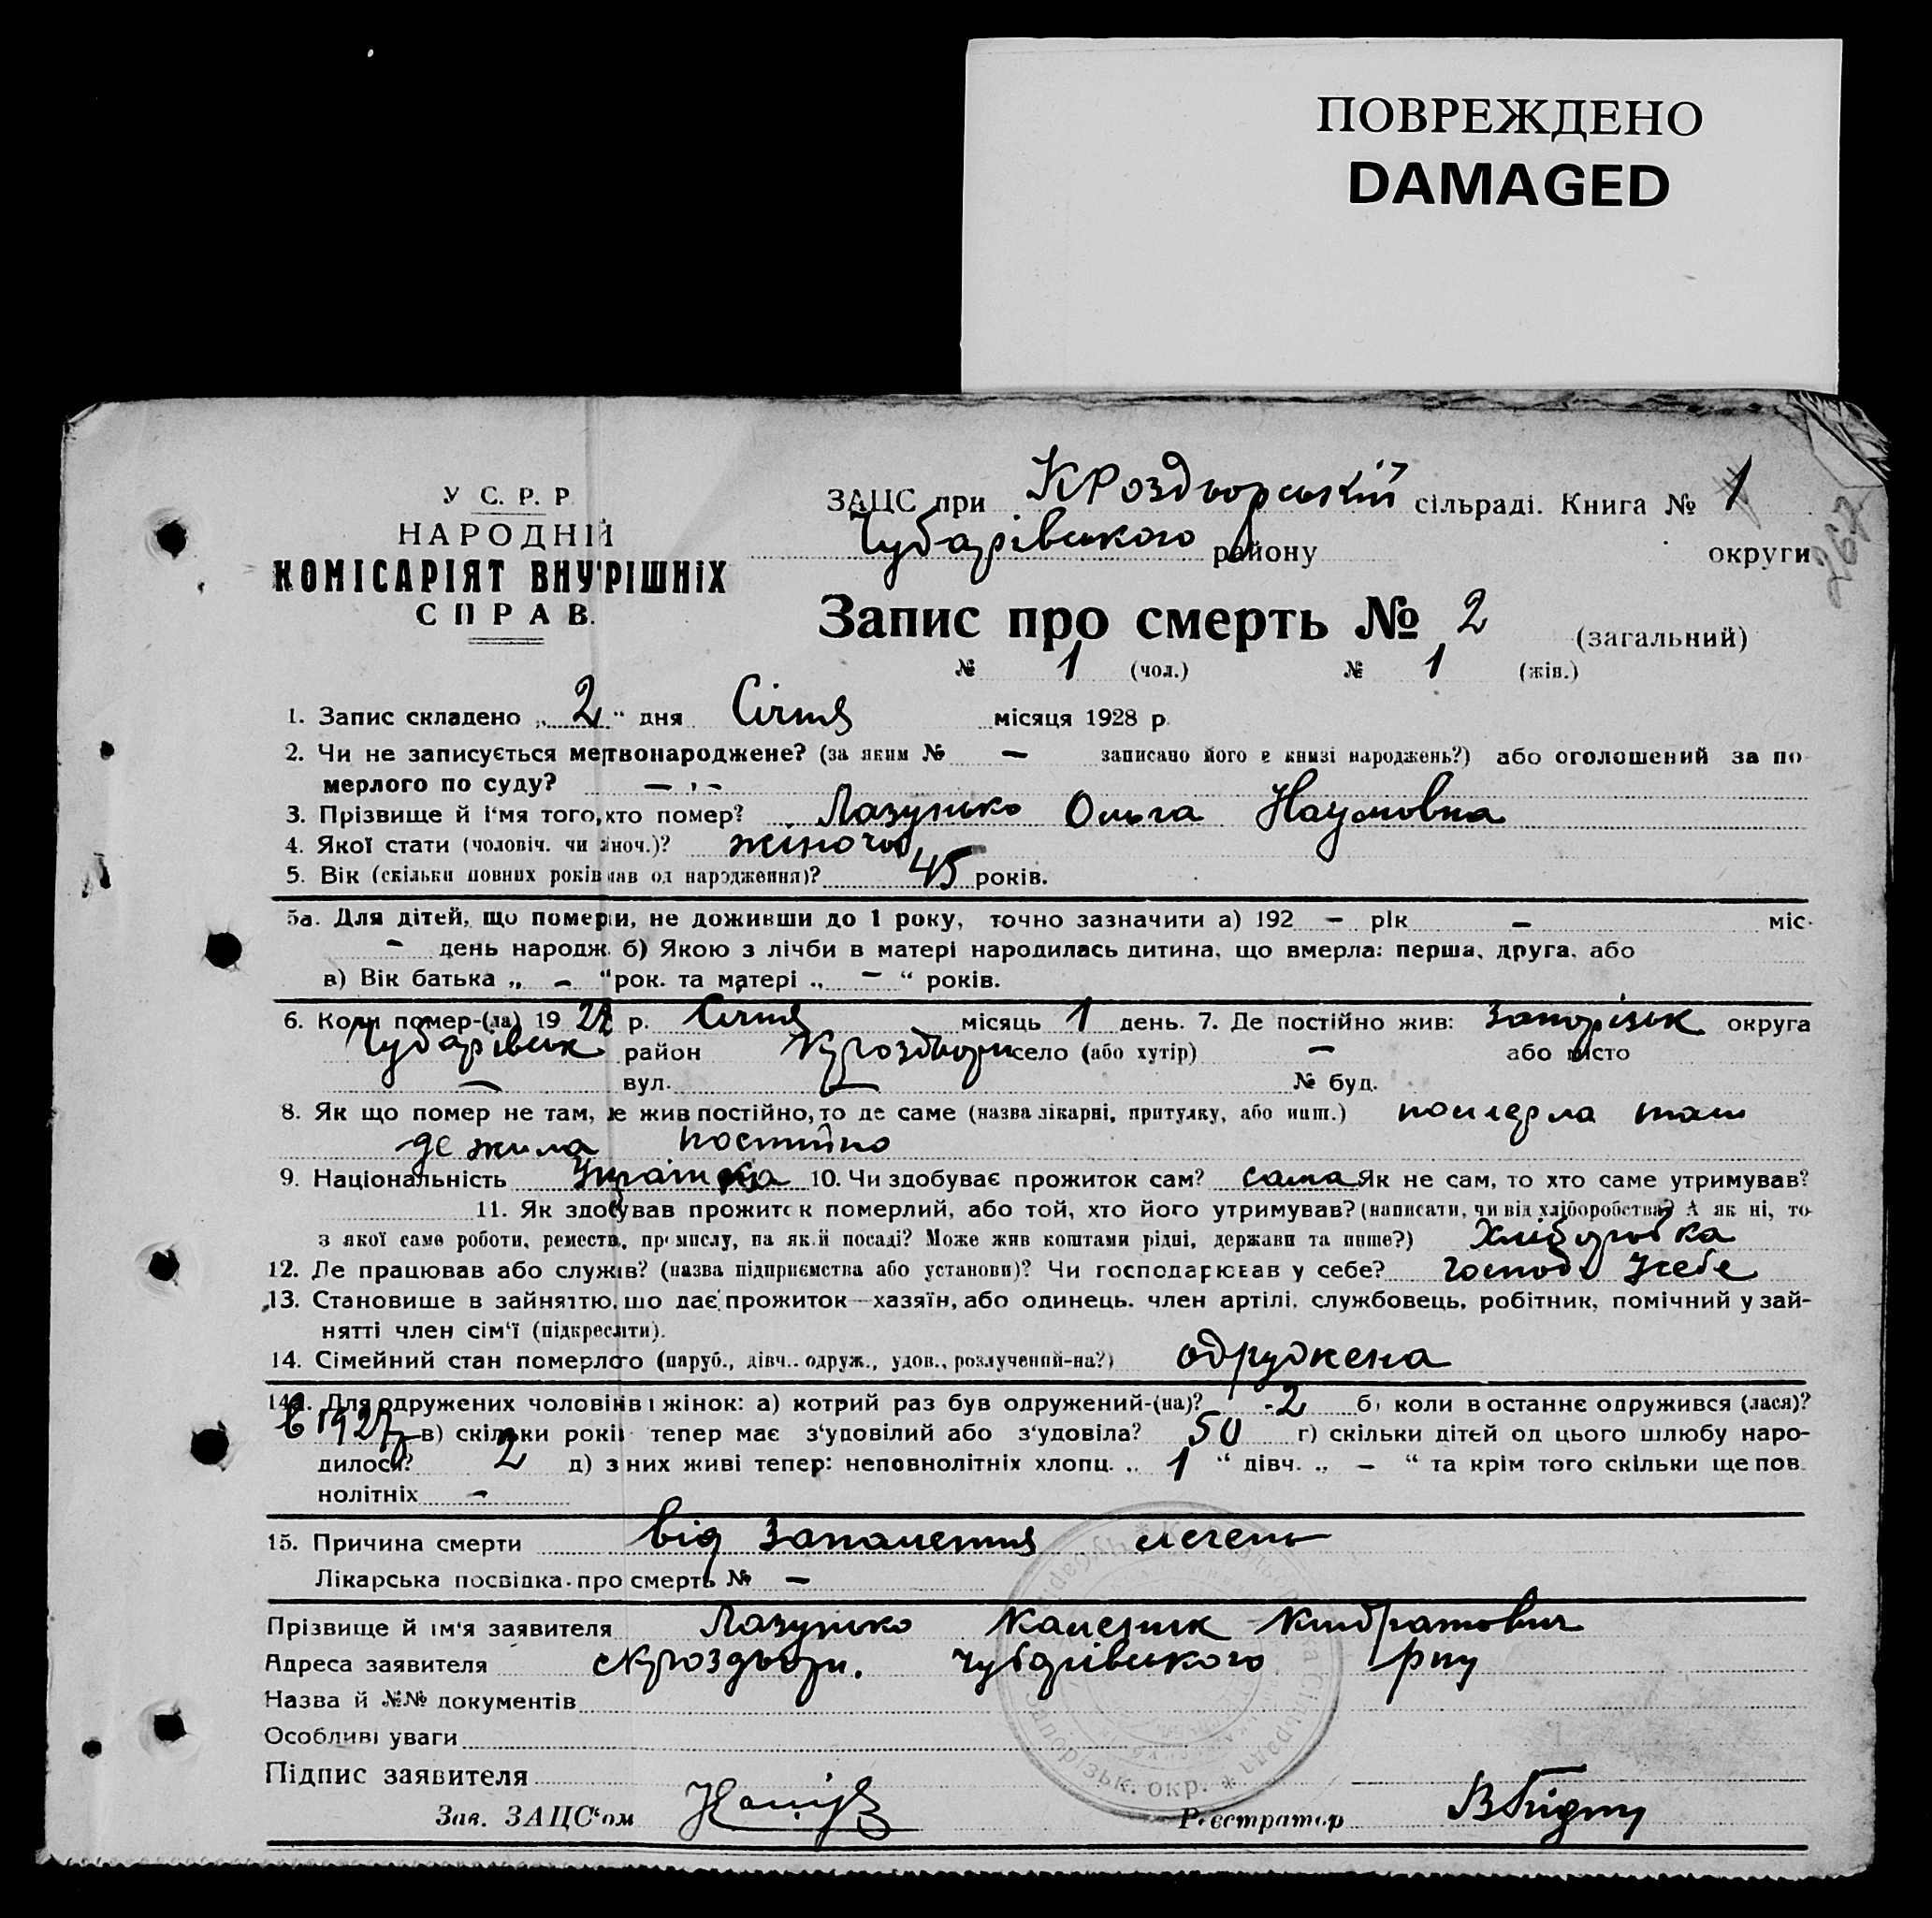 ПОВРЕЖДЕНО
DAMAGED
У С. Р. Р
НАРОДНІЙ
КОМІСАРІЯТ ВНУТРІШНІХ
СПРАВ.
ЗАЦС при КРоздорській сільраді. Книга № 1
Чубарівського району округи
Запис про смерть № 2 (загальний)
№ 1 (чол.) № 1 (жін.)
1. Запис складено „ 2 “ дня Січня місяця 1928 р.
2. Чи не записується мертвонароджене? (за яким № — записано його в книзі народжень?) або оголошений за по-
мерлого по суду? — , —
3. Прізвище й і‘мя того, хто помер? Лазунько Ольга Наумовна
4. Якої стати (чоловіч. чи жіноч.)? жіночої
5. Вік (скільки повних років мав од народження)? 45 років.
5а. Для дітей, що померли, не доживши до 1 року, точно зазначити а) 192 — рік — міс-
— день народж. б) Якою з лічби в матері народилась дитина, що вмерла: перша, друга, або
в) Вік батька „ — “ рок. та матері „ — “ років.
6. Коли помер-(ла) 19 28 р. Січня місяць 1 день. 7. Де постійно жив: Запорізьк округа
Чубарівськ район село (або хутір) — або місто
— вул. — № буд.
8. Як що помер не там, де жив постійно, то де саме (назва лікарні, притулку, або инш.) померла там
де жила постійно
9. Національність Українка 10. Чи здобуває прожиток сам? сама Як не сам, то хто саме утримував?
11. Як здобував прожиток померлий, або той, хто його утримував? (написати, чи від хліборобства? А як ні, то
з якої саме роботи, ремества, промислу, на якій посаді? Може жив коштами рідні, держави та инше?) Хліборобка
12. Де працював або служив? (назва підприємства або установи)? Чи господарював у себе? Господ. у себе
13. Становище в зайняттю, що дає прожиток—хазяїн, або одинець, член артілі, службовець, робітник, помічний у зай-
нятті член сім‘ї (підкреслити).
14. Сімейний стан померлого (паруб., дівч., одруж., удов., розлучений-на?) одружена
14а. Для одружених чоловіків і жінок: а) котрий раз був одружений-(на)? 2 б) коли в останнє одружився (лася)?
В 1927 р в) скільки років тепер має з‘удовілий або з‘удовіла? 50 г) скільки дітей од цього шлюбу наро-
дилося? 2 д) з них живі тепер: неповнолітніх хлопц. „ 1 “ дівч. „ — “ та крім того скільки ще пов-
нолітніх —
15. Причина смерти від запалення легень
Лікарська посвідка про смерть № —
Прізвище й ім‘я заявителя Лазунько Кіндратович
Адреса заявителя Чубарівського р-ну
Назва й №№ документів
Особливі уваги
Підпис заявителя
Зав. ЗАЦС‘ом
Реєстратор
Запорізьк. окр.